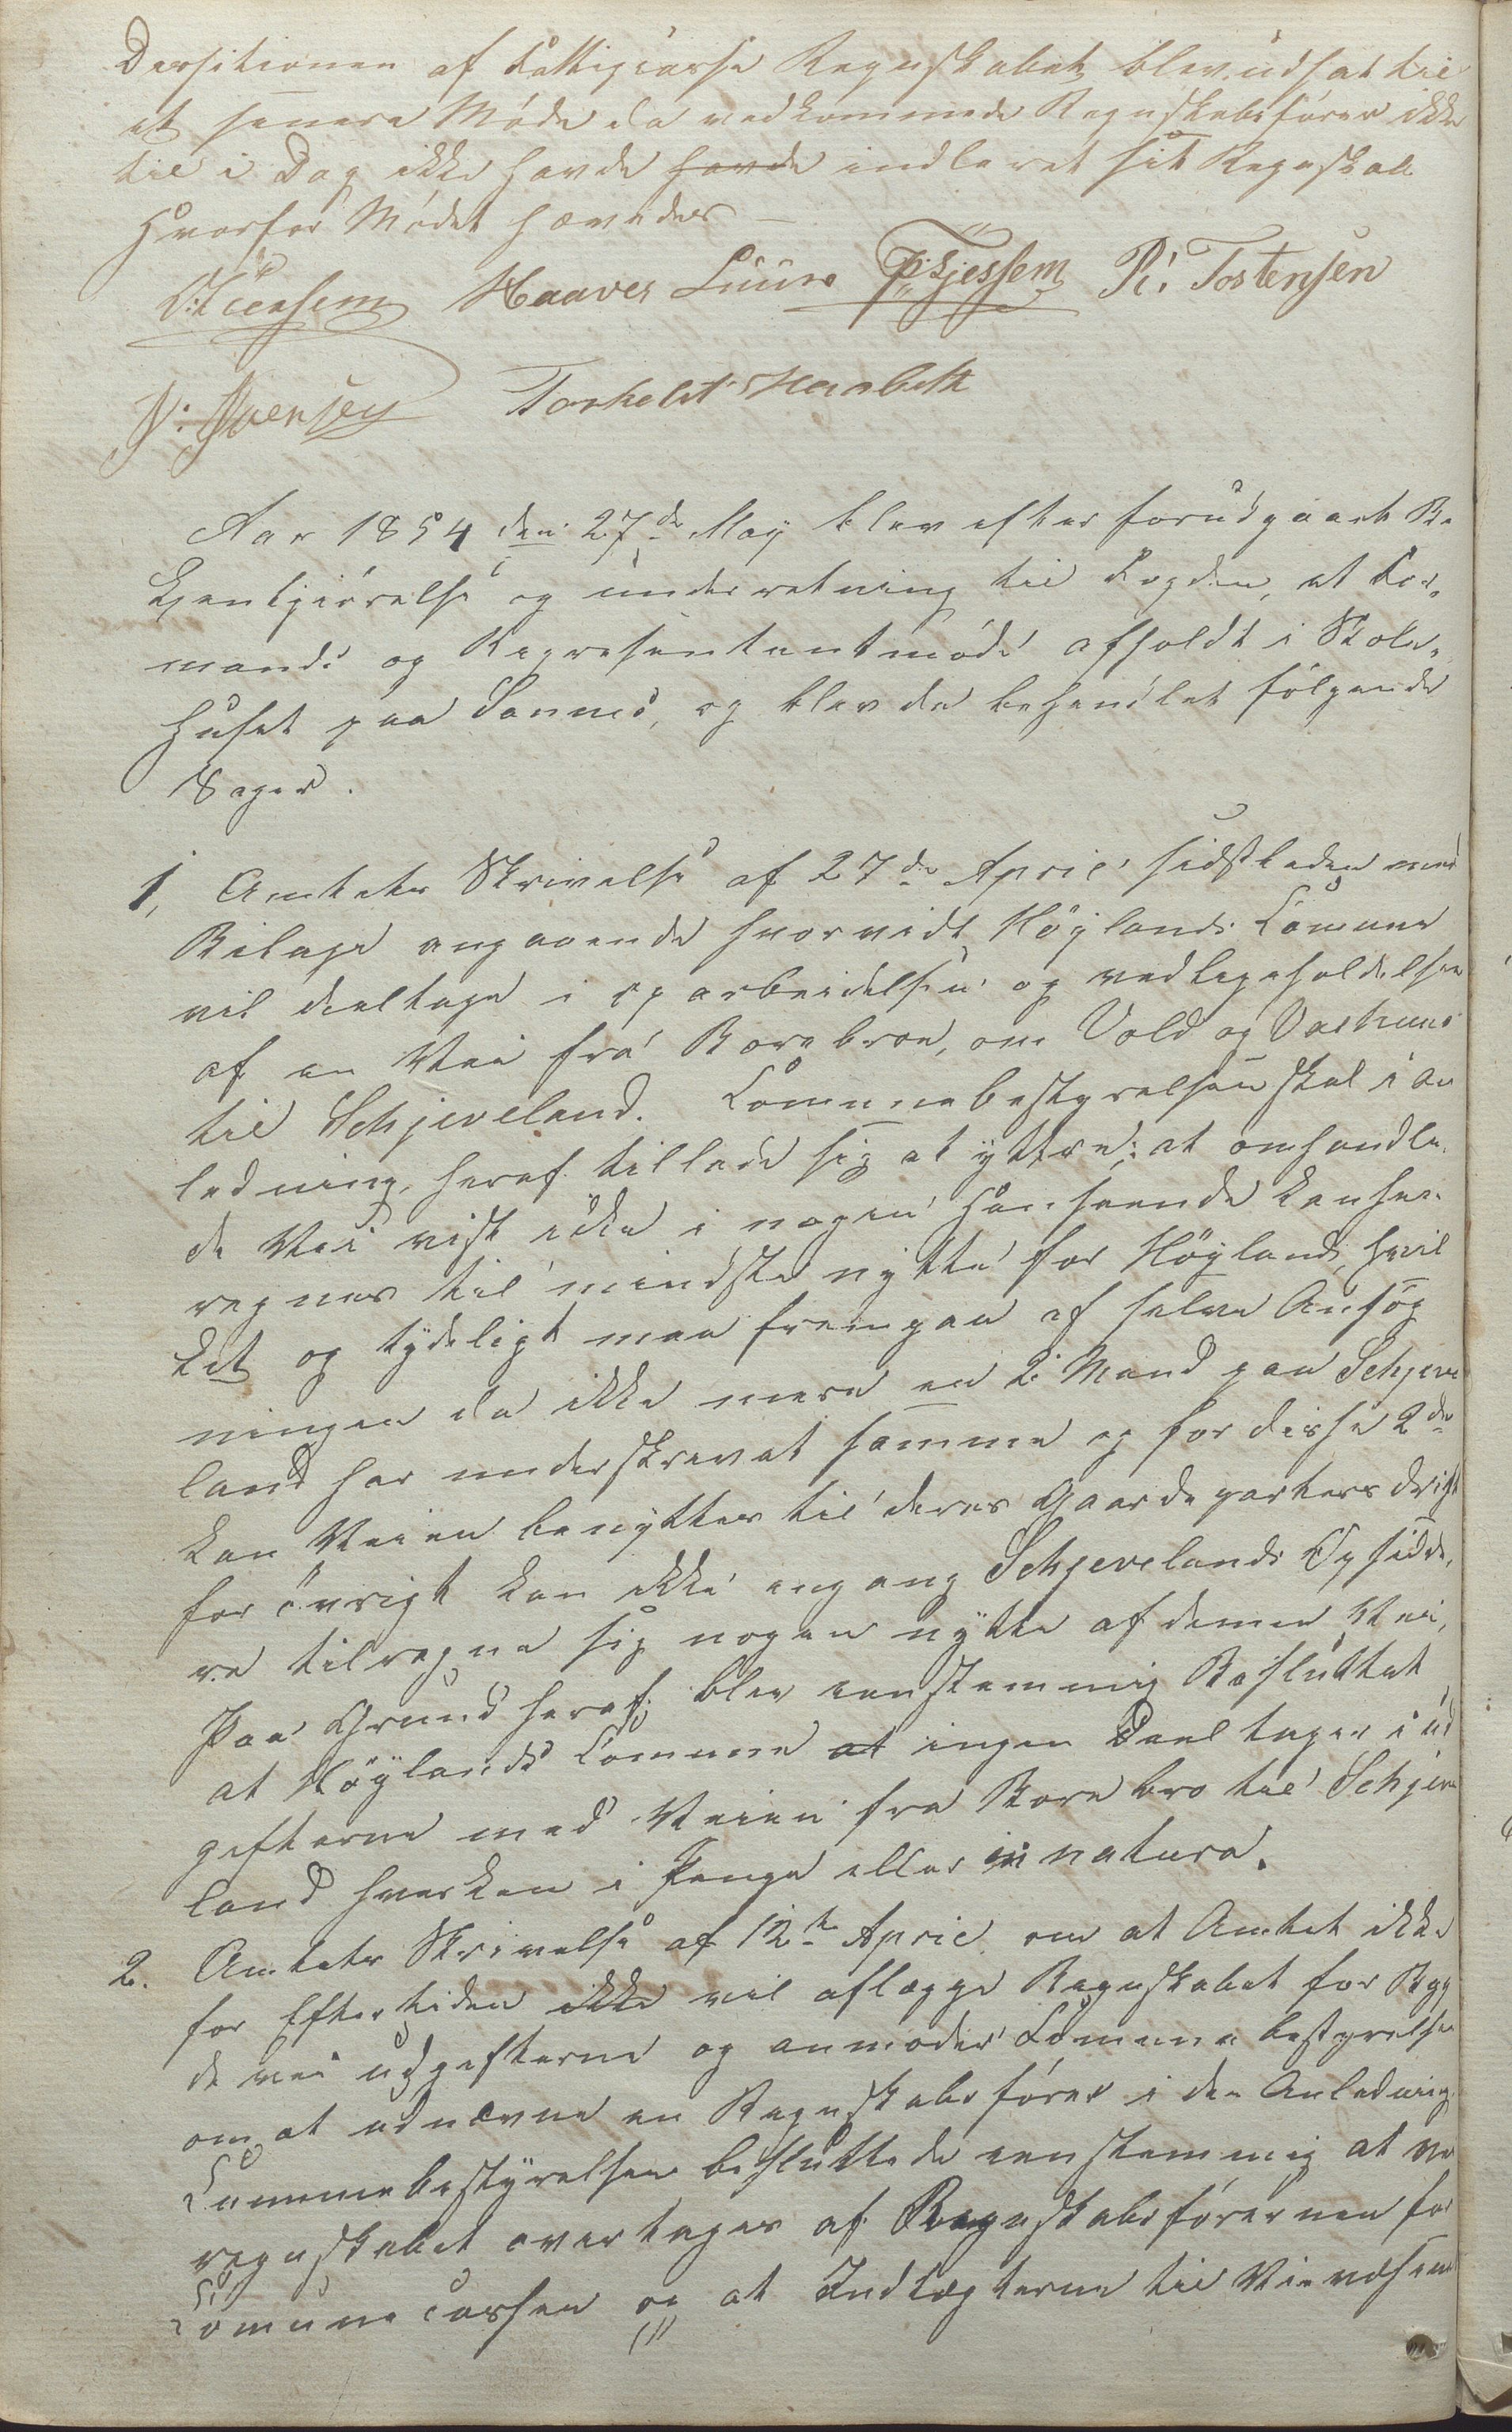 Decitionen af Fattigcasse Regnskabet blev udsat til
et senere Møde da vedkommende Regnskabsfører ikke
til i Dag ikke havde havde indleveret sit Regnskab
hvorfor Mødet hævedes —
Haaver Luura P. Tjessem R. Tostensen
N. Svensen Torkeld Hanabeth
Aar 1854 den 27de May blev efter forudgaaet Be
kjentgjørelse og underretning til Fogden, et For„
mands og Representantmøde afholdt i Skole„
huset paa Sannes, og blev da behandlet følgende
Sager.
1, Amtets Skrivelse af 27de April sidstleden med
Bilage angaaende hvorvidt Höylands Comune
vil deeltage i oparbeidelsen og vedligeholdelsen
af en Vei fra Borebroe, om Vold og Vashuus
til Schjeveland. Comunebestyrelsen skal i An
ledning heraf tillade sig at yttre: at omhandle„
de Vei vist ikke i nogen Henseende kan hen„
regnes til mindste nytte for Höyland, hvil
ket og tydeligt maa fremgaa af selve Ansøg
ningen da ikke mere en 2 Mand paa Schjeve
land har underskrevet samme og for disse 2de
kan Veien benyttes til deres Gaardeparters drift
for øvrigt kan ikke engang Schjevelands Opsidde„
re tilregne sig nogen nytte af denne Vei,
Paa Grund heraf blev eenstemmig Besluttet
at Höylands Comune at ingen Deel tager i ud
gifterne med Veien fra Borebro til Schjeve
land hverken i Penge eller in natura.
2. Amtets Skrivelse af 12te April om at Amtet ikke
for Eftertiden ikke vil aflægge Regnskabet for Byg
deveiudgifterne og anmoder Comunebestyrelsen
om at udnævne en Regnskabsfører i den Anledning.
Comunebestyrelsen besluttede eenstemmig at Vei
regnskabet overtages af Regnskabsføreren for
Comunecassen og at Indtægterne til Veivæsenet